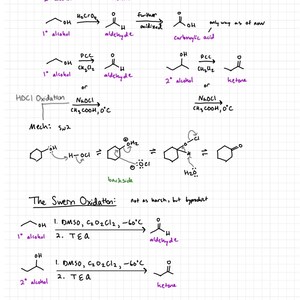 OH H₂CrO₄ O H further oxidized O OH only way as of now
1° alcohol aldehyde carboxylic acid
OH PCC CH₂Cl₂ O H OH PCC CH₂Cl₂ O
1° alcohol aldehyde 2° alcohol ketone
or or
HOCl Oxidation NaOCl CH₃COOH, 0°C NaOCl CH₃COOH, 0°C
Mech: SN2
OH H-OCl OH₂ :OCl O Cl H O
backside H₂O
The Swern Oxidation: not as harsh, but byproduct
OH 1. DMSO, C₂O₂Cl₂, -60°C O H
1° alcohol 2. TEA aldehyde
OH 1. DMSO, C₂O₂Cl₂, -60°C O
2° alcohol 2. TEA ketone